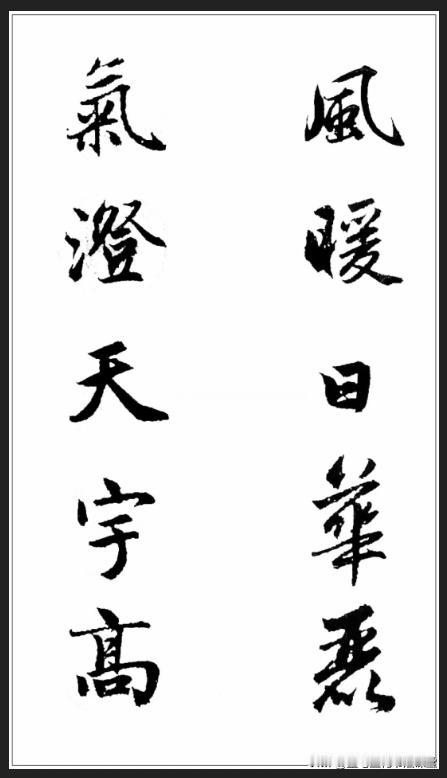 風暖日華麗
氣澄天宇高